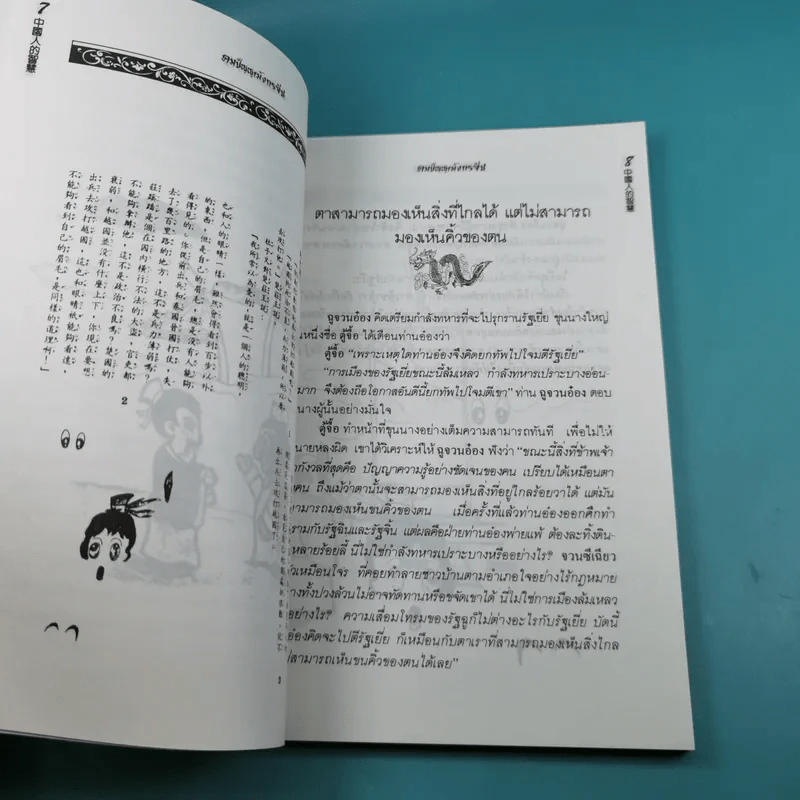 7 中國人的智慧
คมปัญญามังกรจีน
也和人的眼睛一樣,雖然曾得看到百步以外
的東西,但是自己的眉毛,總是沒有人能夠
看得見的。你從前出兵和秦國晉國打仗,失
去了幾百里路的地方,這不是兵力薄弱嗎?
莊蹻是個在國內橫行不法的大盜,官吏都
不能夠拿辦他,這不是政治不良嗎?楚國的
衰弱,和越國並沒有什麼上下,你現在要想
出兵去攻打越國,這也和眼睛祇能夠看遠,
不能夠看到自己的眉毛,是同樣的道理啊!」
2
3
8 中國人的智慧
คมปัญญามังกรจีน
ตาสามารถมองเห็นสิ่งที่ไกลได้ แต่ไม่สามารถ
มองเห็นคิ้วของตน
ฉู่จวนอ๋อง คิดเตรียมกำลังทหารที่จะไปรุกรานรัฐเยี่ย ขุนนางใหญ่
หนึ่งชื่อ ตู้จื๊อ ได้เตือนท่านอ๋องว่า
ตู้จื๊อ "เพราะเหตุใดท่านอ๋องจึงคิดยกทัพไปโจมตีรัฐเยี่ย"
"การเมืองของรัฐเยี่ยขณะนี้ล้มเหลว กำลังทหารเปราะบางอ่อน-
มาก จึงต้องถือโอกาสอันดีนี้ยกทัพไปโจมตีเขา" ท่าน ฉู่จวนอ๋อง ตอบ
นางผู้นั้นอย่างมั่นใจ
ตู้จื๊อ ทำหน้าที่ขุนนางอย่างเต็มความสามารถทันที เพื่อไม่ให้
นายหลงผิด เขาได้วิเคราะห์ให้ ฉู่จวนอ๋อง ฟังว่า "ขณะนี้สิ่งที่ข้าพเจ้า
กังวลที่สุดคือ ปัญญาความรู้อย่างชัดเจนของคน เปรียบได้เหมือนตา
คน ถึงแม้ว่าตานั้นจะสามารถมองเห็นสิ่งที่อยู่ไกลร้อยวาได้ แต่มัน
สามารถมองเห็นขนคิ้วของตน เมื่อครั้งที่แล้วท่านอ๋องออกศึกทำ
รามกับรัฐฉินและรัฐจิ้น แต่ผลคือฝ่ายท่านอ๋องพ่ายแพ้ ต้องละทิ้งดิน-
หลายร้อยลี้ นี่ไม่ใช่กำลังทหารเปราะบางหรืออย่างไร? จวนซีเฉียว
ัวเหมือนโจร ที่คอยทำลายชาวบ้านตามอำเภอใจอย่างไร้กฎหมาย
างทั้งปวงล้วนไม่อาจทัดทานหรือขจัดเขาได้ นี่ไม่ใช่การเมืองล้มเหลว
อย่างไร? ความเสื่อมโทรมของรัฐฉู่ก็ไม่ต่างอะไรกับรัฐเยี่ย บัดนี้
อ๋องคิดจะไปตีรัฐเยี่ย ก็เหมือนกับตาเราที่สามารถมองเห็นสิ่งไกล
สามารถเห็นขนคิ้วของตนได้เลย"